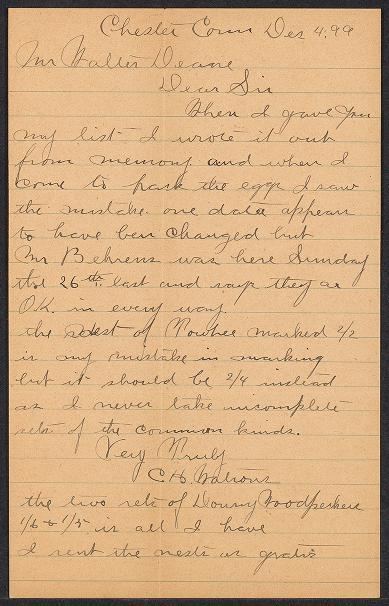 Chester Conn Dec 4, 99
Mr Walter Deane
Dear Sir
When I gave you
my list I wrote it out
from memory and when I
come to pack the eggs I saw
the mistake. one data appears
to have ben changed but
Mr Behrens was here Sunday
the 26th last and says they ar
O.K. in every way.
the set of Towhee marked 2/2
is my mistake in marking
but it should be 2/4 instead
as I never take incomplete
sets of the common kinds.
Very Truly
C H Watrous
the two sets of Downy Woodpeckers
1/6 & 1/5 is all I have
I sent the nests as gratis